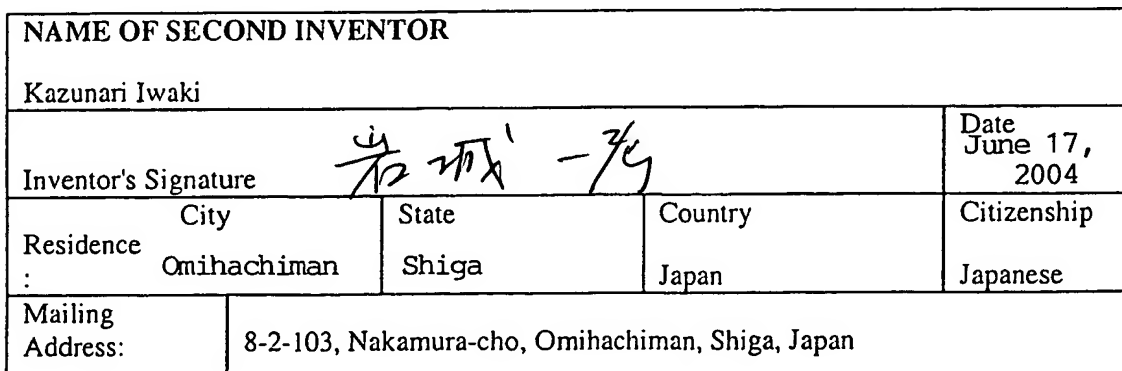 NAME OF SECOND INVENTOR
Kazunari Iwaki
Inventor's Signature 岩城 一
Date
June 17,
2004
Residence
:
City
Omihachiman
State
Shiga
Country
Japan
Citizenship
Japanese
Mailing
Address:
8-2-103, Nakamura-cho, Omihachiman, Shiga, Japan